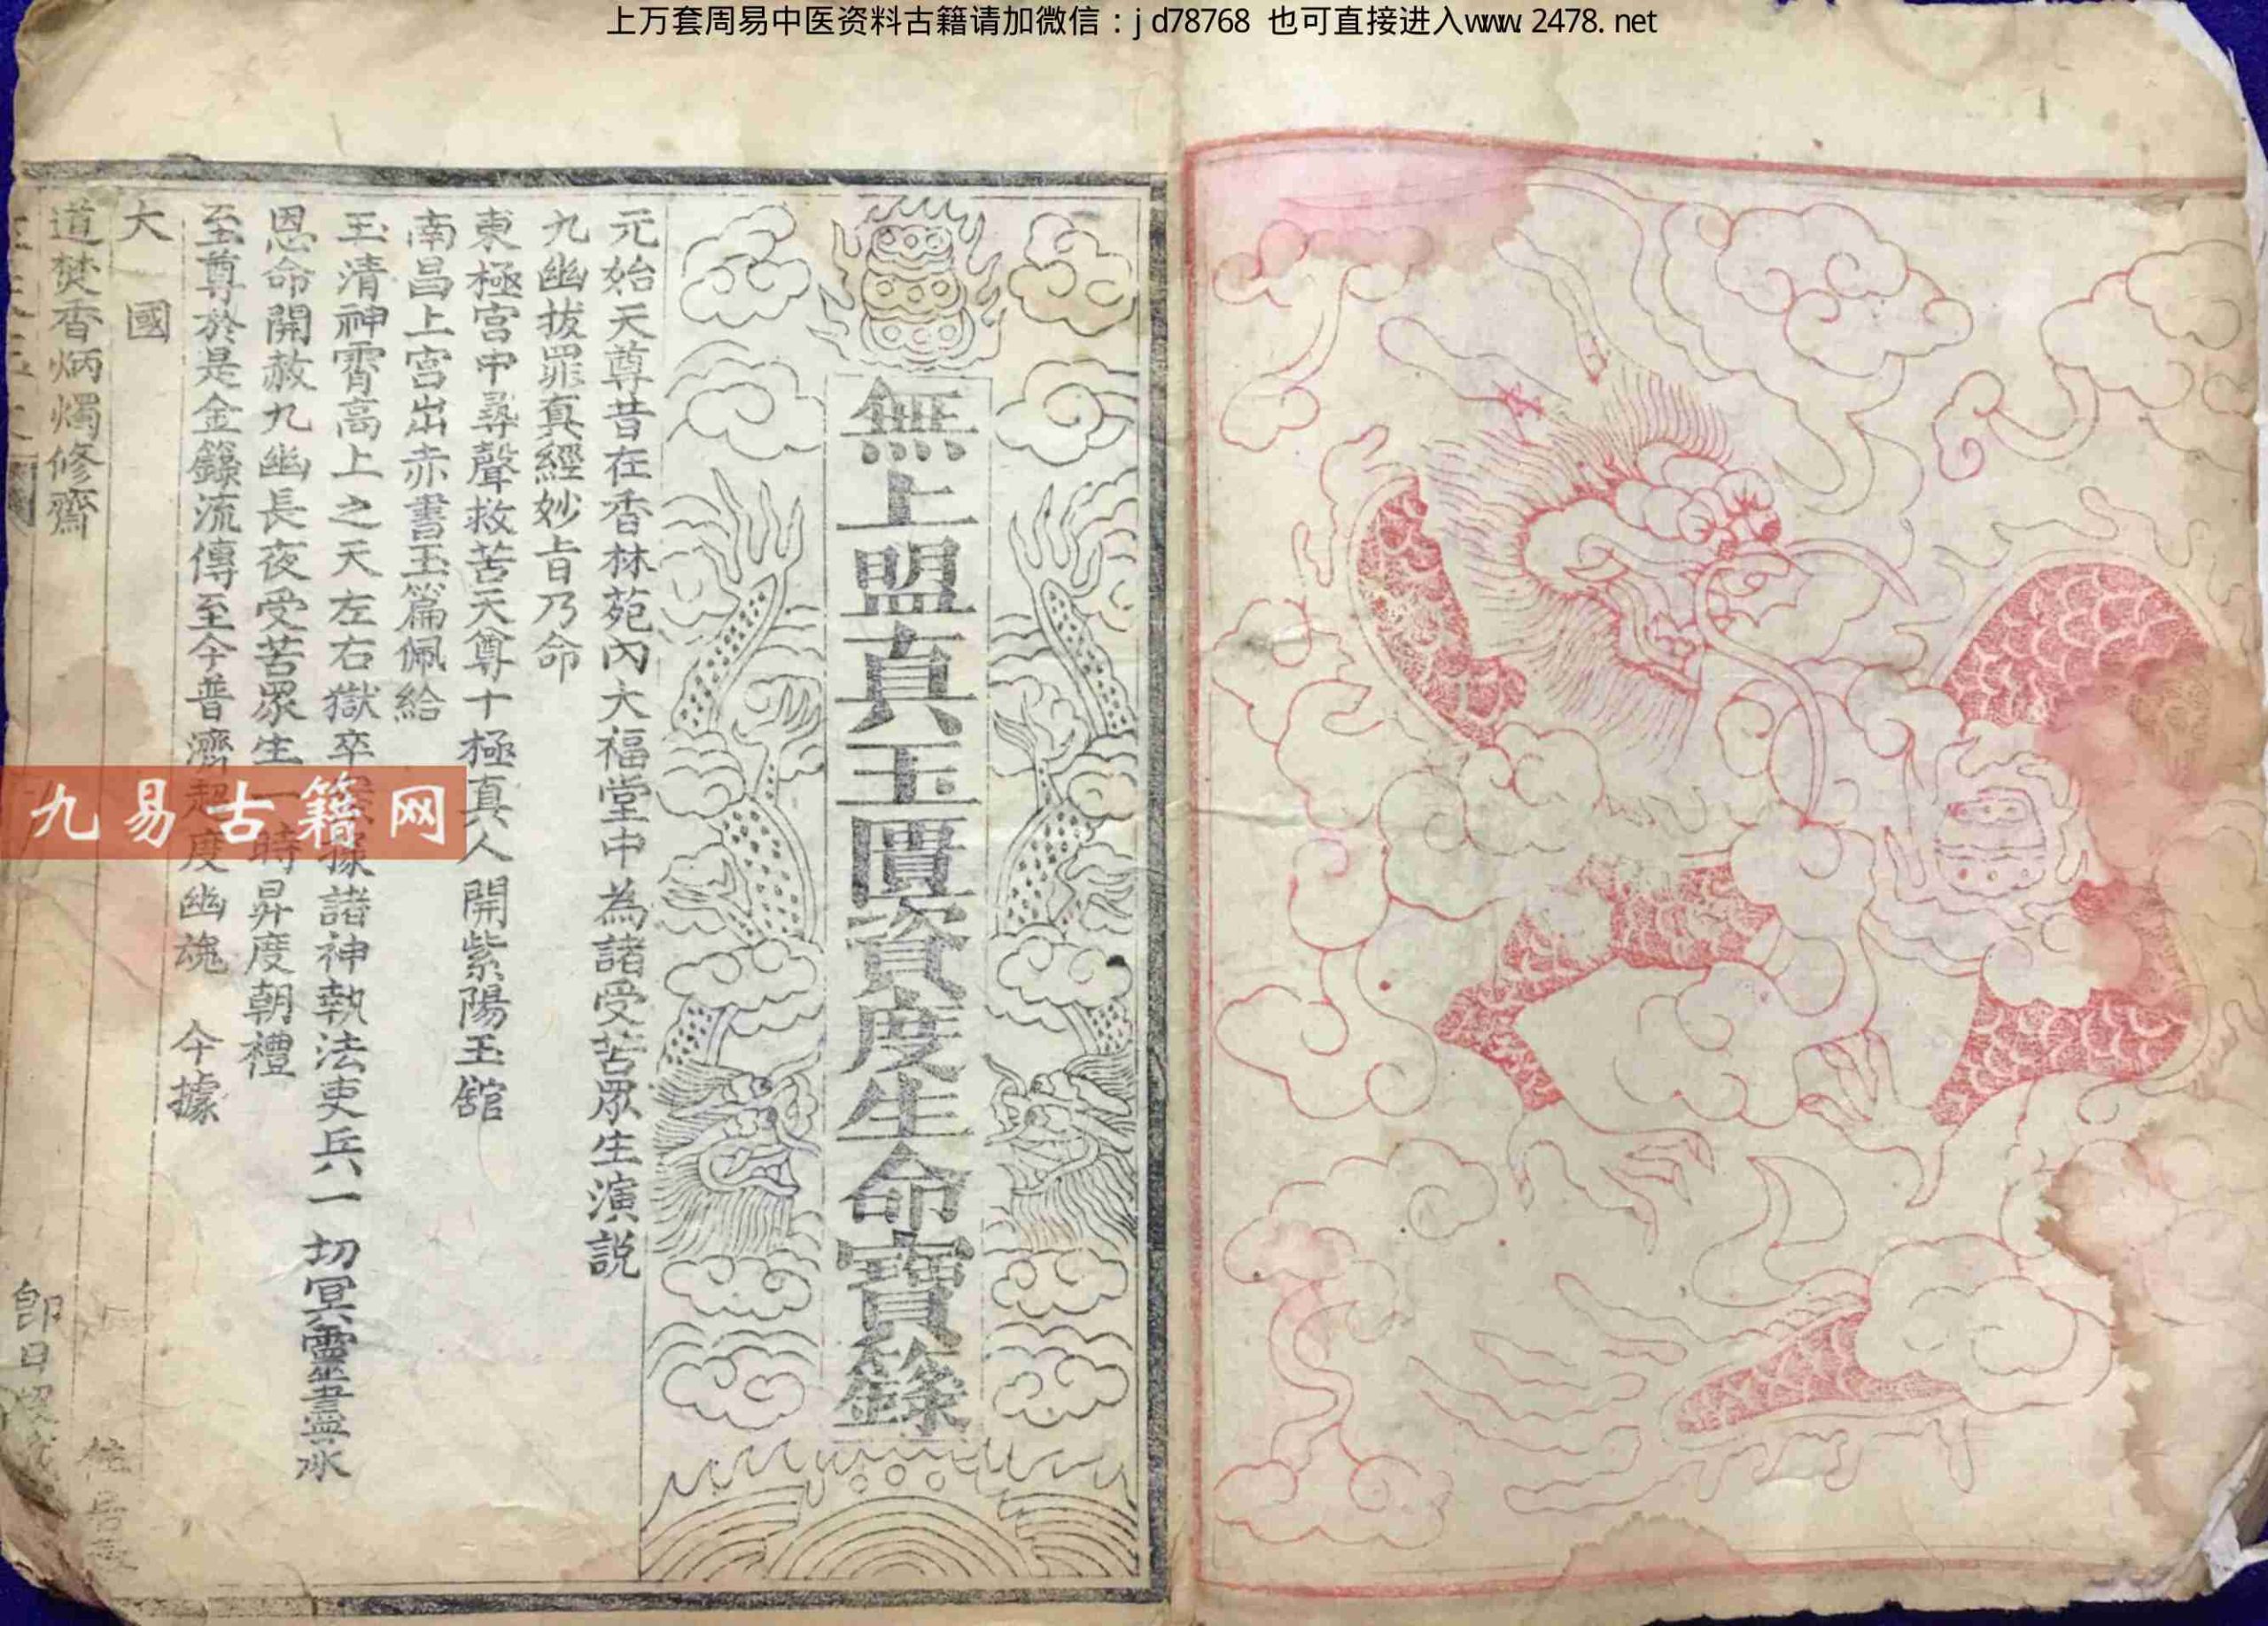 上万套周易中医资料古籍请加微信：jd78768 也可直接进入www.2478.net
無上盟真玉匱資度生命寶籙
元始天尊昔在香林苑內大福堂中為諸受苦眾生演説
九幽拔罪真經妙旨乃命
東極宮中尋聲救苦天尊十極真人開紫陽玉舘
南昌上宮出赤書玉篇佩給
玉清神霄高上之天左右獄卒據諸神執法吏兵一切冥靈盡
恩命開赦九幽長夜受苦眾生一時昇度朝禮
至尊於是金籙流傳至今普濟超度幽魂 今據
大國
道焚香炳燭修齋
即日
九易古籍网